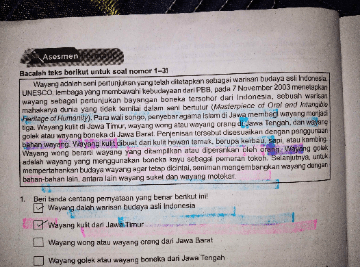 Asesmen
Bacalah teks berikut untuk soal nomor 1–3!
Wayang adalah seni pertunjukan yang telah ditetapkan sebagai warisan budaya asli Indonesia.
UNESCO, lembaga yang membawahi kebudayaan dari PBB, pada 7 November 2003 menetapkan
wayang sebagai pertunjukan bayangan boneka tersohor dari Indonesia, sebuah warisan
mahakarya dunia yang tidak ternilai dalam seni bertutur (Masterpiece of Oral and Intangible
Heritage of Humanity). Para wali songo, penyebar agama Islam di Jawa membagi wayang menjadi
tiga. Wayang kulit di Jawa Timur, wayang wong atau wayang orang di Jawa Tengah, dan wayang
golek atau wayang boneka di Jawa Barat. Penjenisan tersebut disesuaikan dengan penggunaan
bahan wayang. Wayang kulit dibuat dari kulit hewan ternak, berupa kerbau, sapi, atau kambing.
Wayang wong berarti wayang yang ditampilkan atau diperankan oleh orang. Wayang golek
adalah wayang yang menggunakan boneka kayu sebagai pemeran tokoh. Selanjutnya, untuk
mempertahankan budaya wayang agar tetap dicintai, seniman mengembangkan wayang dengan
bahan-bahan lain, antara lain wayang suket dan wayang motekar.
1. Beri tanda centang pernyataan yang benar berikut ini!
Wayang adalah warisan budaya asli Indonesia
Wayang kulit dari Jawa Timur
Wayang wong atau wayang orang dari Jawa Barat
Wayang golek atau wayang boneka dari Jawa Tengah